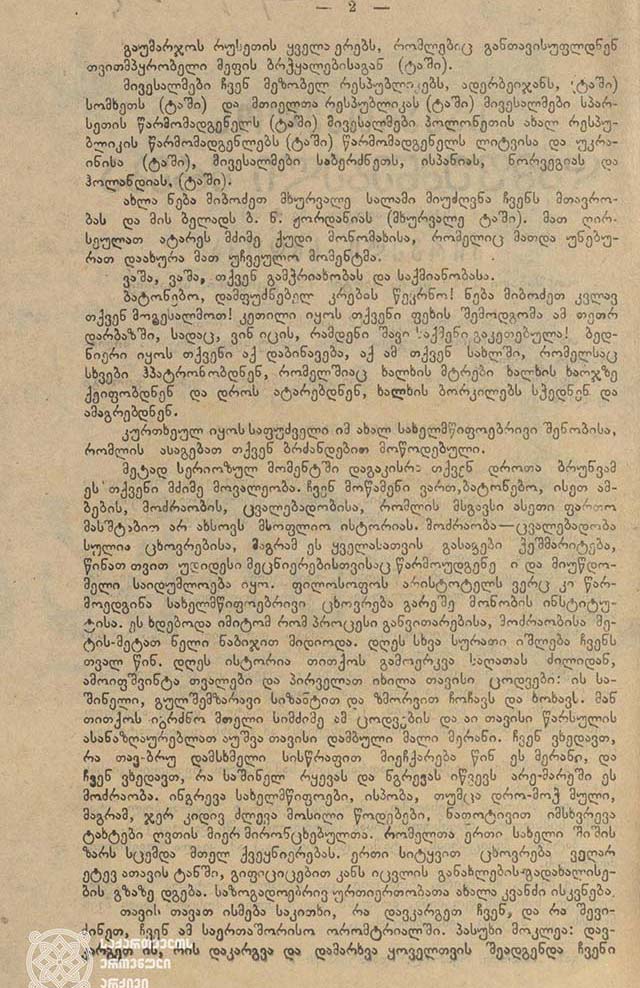 — 2 —
გაუმარჯოს რუსეთის ყველა ერებს, რომლებიც განთავისუფლდნენ
თვითმპყრობელი მეფის ბრჭყალებისაგან (ტაში).
მივესალმები ჩვენ მეზობელ რესპუბლიკებს, ადერბეიჯანს, (ტაში)
სომხეთს (ტაში) და მთიელთა რესპუბლიკას (ტაში) მივესალმები სპარ-
სეთის წარმომადგენელს (ტაში) მივესალმები პოლონეთის ახალ რესპუ-
ბლიკის წარმომადგენლებს (ტაში) წარმომადგენელს ლიტვისა და უკრა-
ინისა (ტაში), მივესალმები საბერძნეთს, ისპანიას, ნორვეგიას და
ჰოლანდიას, (ტაში).
ახლა ნება მიბოძეთ მხურვალე სალამი მიუძღვნა ჩვენს მთავრო-
ბას და მის ბელადს ბ. ნ. ჟორდანიას (მხურვალე ტაში). მათ ღირ-
სეულათ ატარეს მძიმე ქუდი მონომახისა, რომელიც მათდა უნებუ-
რათ დაახურა მათ უჩვეულო მომენტმა.
ვაშა, ვაშა, თქვენ გამჭრიახობას და საქმიანობასა.
ბატონებო, დამფუძნებელ კრების წევრნო! ნება მიბოძეთ კვლავ
თქვენ მოგესალმოთ! კეთილი იყოს თქვენი ფეხის შემოდგომა ამ თეთრ
დარბაზში, სადაც, ვინ იცის, რამდენი შავი საქმენი გაკეთებულა! ბედ-
ნიერი იყოს თქვენი აქ დაბინავება, აქ ამ თქვენ სახლში, რომელსაც
სხვები ჰპატრონობდნენ, რომელშიაც ხალხის მტრები ხალხის ხარჯზე
ქეიფობდნენ და დროს ატარებდნენ, ხალხის ბორკილებს სჭედნენ და
ამაგრებდნენ.
კურთხეულ იყოს საფუძველი იმ ახალ სახელმწიფოებრივი შენობისა,
რომლის ასაგებათ თქვენ ბრძანდებით მოწოდებული.
მეტად სერიოზულ მომენტში დაგაკისრა თქვენ დროთა ბრუნვამ
ეს თქვენი მძიმე მოვალეობა. ჩვენ მოწამენი ვართ, ბატონებო, ისეთ ამ-
ბების, მოძრაობის, ცვალებადობისა, რომლის მსგავსი ასეთი ფართო
მასშტაბით არ ახსოვს მსოფლიო ისტორიას. მოძრაობა—ცვალებადობა
სულია ცხოვრებისა, მაგრამ ეს ყველასათვის გასაგები ჭეშმარიტება,
წინათ თვით უდიდესი მეცნიერებისთვისაც წარმოუდგენე ი და მიუწდო-
მელი საიდუმლოება იყო. ფილოსოფოს არისტოტელს ვერც კი წარ-
მოედგინა სახელმწიფოებრივი ცხოვრება გარეშე მონობის ინსტიტუ-
ტისა. ეს ხდებოდა იმიტომ რომ პროცესი განვითარებისა, მოძრაობისა მე-
ტის-მეტათ ნელი ნაბიჯით მიდიოდა. დღეს სხვა სურათი იშლება ჩვენს
თვალ წინ. დღეს ისტორია თითქოს გამოერკვა საღათას ძილიდან,
ამოიფშვინტა თვალები და პირველათ იხილა თავისი ცოდვები: ის სა-
შინელი, გულშემზარავი სიზანტით და ზმორვით ჩოჩავს და ხოხავს. მან
თითქოს იგრძნო მთელი სიმძიმე ამ ცოდვების და აი თავისი წარსულის
ასანაზღაურებლათ აუშვა თავისი დამბული მალი მერანი. ჩვენ ვხედავთ,
რა თავ-ბრუ დამსხმელი სისწრაფით მიეჩქარება წინ ეს მერანი, და
ჩვენ ვხედავთ, რა საშინელ რყევას და ნგრევას იწვევს არე-მარეში ეს
მოძრაობა. ინგრევა სახელმწიფოები, ისპობა, თუმცა დრო-მოჭ მული,
მაგრამ, ჯერ კიდივ ძლევა მოსილი წოდებები, ნაფოტივით იმსხვრევა
ტახტები ღვთის მიერ მირონცხებულთა. რომელთა ერთი სახელი შიშის
ზარს სცემდა მთელ ქვეყნიერებას. ერთი სიტყვით ცხოვრება ვეღარ
ეტევ ათავის ტანში, გიფიციცებით კანს იცვლის განახლების-გადახალისე-
ბის გზაზე დგება. საზოგადოებრივ ურთიერთობათა ახალა კვანძი ისკვნება.
თავის თავათ ისმება საკითხი, რა დავკარგეთ ჩვენ, და რა შევი-
ძინეთ, ჩვენ ამ საერთაშორისო ორომტრიალში. პასუხი მოკლეა: დავ-
კარგეთ ის, რის დაკარგვა და დამარხვა ყოველთვის შეადგენდა ჩვენი
საქართველოს
ეროვნული
არქივი